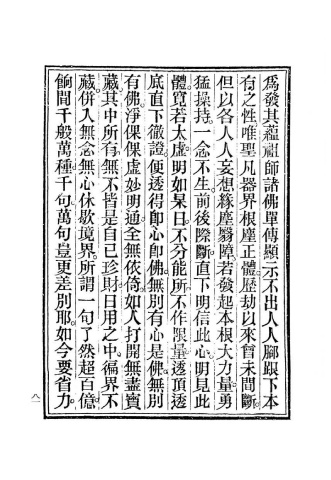 為發其蘊祖師諸佛單傳顯示不出人人腳跟下本
有之性唯聖凡器界根塵正體歷劫以來曾未間斷
但以各人人妄想緣塵翳障若發起本根大力量勇
猛操持一念不生前後際斷直下明信此心明見此
體寬若太虛明如杲日不分能所不作限量透頂透
底直下徹證便透得即心即佛無別有心是佛無別
有佛淨倮倮虛妙明通全無依倚如人打開無盡寶
藏其中所有無不皆是自己珍財日用之中徧界不
藏併入無念無心休歇境界所謂一句了然超百億
餉間千般萬種千句萬句豈更差別耶如今要省力
八一